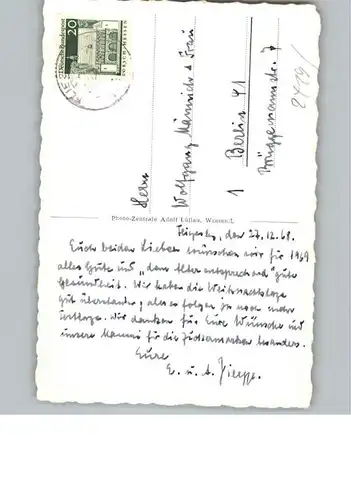 Deutsche Bundespost
20
LORSCH
HESSEN
Herrn
Wolfgang Männich u Frau
1 Berlin 41
Brüggemannstr. 7
Photo-Zentrale Adolf Lüllau, Wesenuf.
den 27.12.68.
Euch beiden Lieben wünschen wir für 1969
alles Gute und „dem Alter entsprechend" gute
Gesundheit. Wir haben die Weihnachtstage
gut überstanden, aber es folgen ja noch mehr
Festtage. Wir danken für Eure Wünsche und
unsere Mammi für die besonders.
Eure
E. u. A.